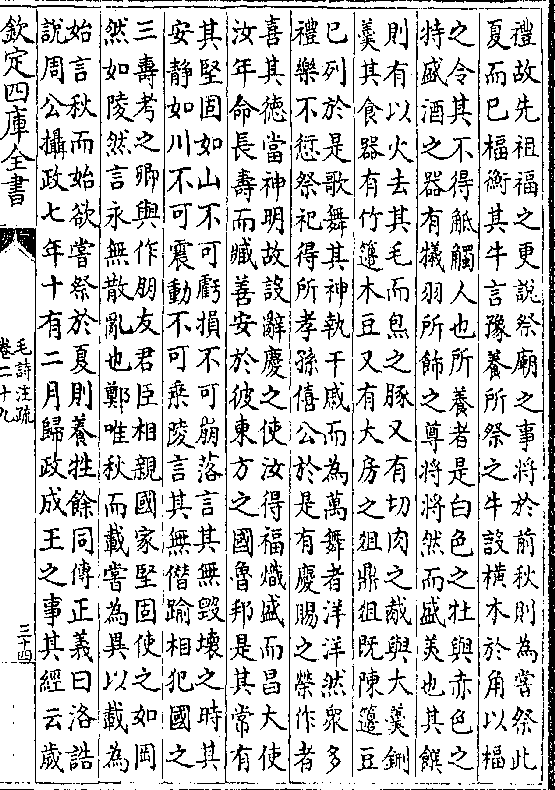 禮故先祖福之更說祭廟之事將於前秋則為嘗祭此
夏而已楅衡其牛言豫養所祭之牛設橫木於角以楅
之令其不得觝觸人也所養者是白色之牡與赤色之
特盛酒之器有犧羽所飾之尊將將然而盛美也其饌
則有以火去其毛而炰之豚又有切肉之胾與大羹鉶
羹其食器有竹籩木豆又有大房之俎鼎俎既陳籩豆
已列於是歌舞其神執干戚而為萬舞者洋洋然眾多
禮樂不愆祭祀得所孝孫僖公於是有慶賜之榮作者
喜其德當神明故設辭慶之使汝得福熾盛而昌大使
汝年命長壽而臧善安於彼東方之國魯邦是其常有
其堅固如山不可虧損不可崩落言其無毀壞之時其
安靜如川不可震動不可乘陵言其無僭踰相犯國之
三壽考之卿與作朋友君臣相親國家堅固使之如岡
然如陵然言永無散亂也鄭唯秋而載嘗為異以載為
始言秋而始欲嘗祭於夏則養牲餘同傳正義曰洛誥
說周公攝政七年十有二月歸政成王之事其經云歲
欽定四庫全書
毛詩注疏
卷二十九
三十四